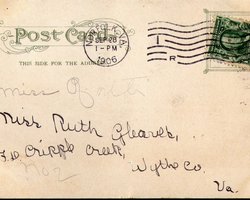 Post Card.
THIS SIDE FOR THE ADDRESS
1-PM
1906
R
Miss
Miss Ruth Gleaves,
Cripple Creek,
Wythe Co.
No 2
Va.